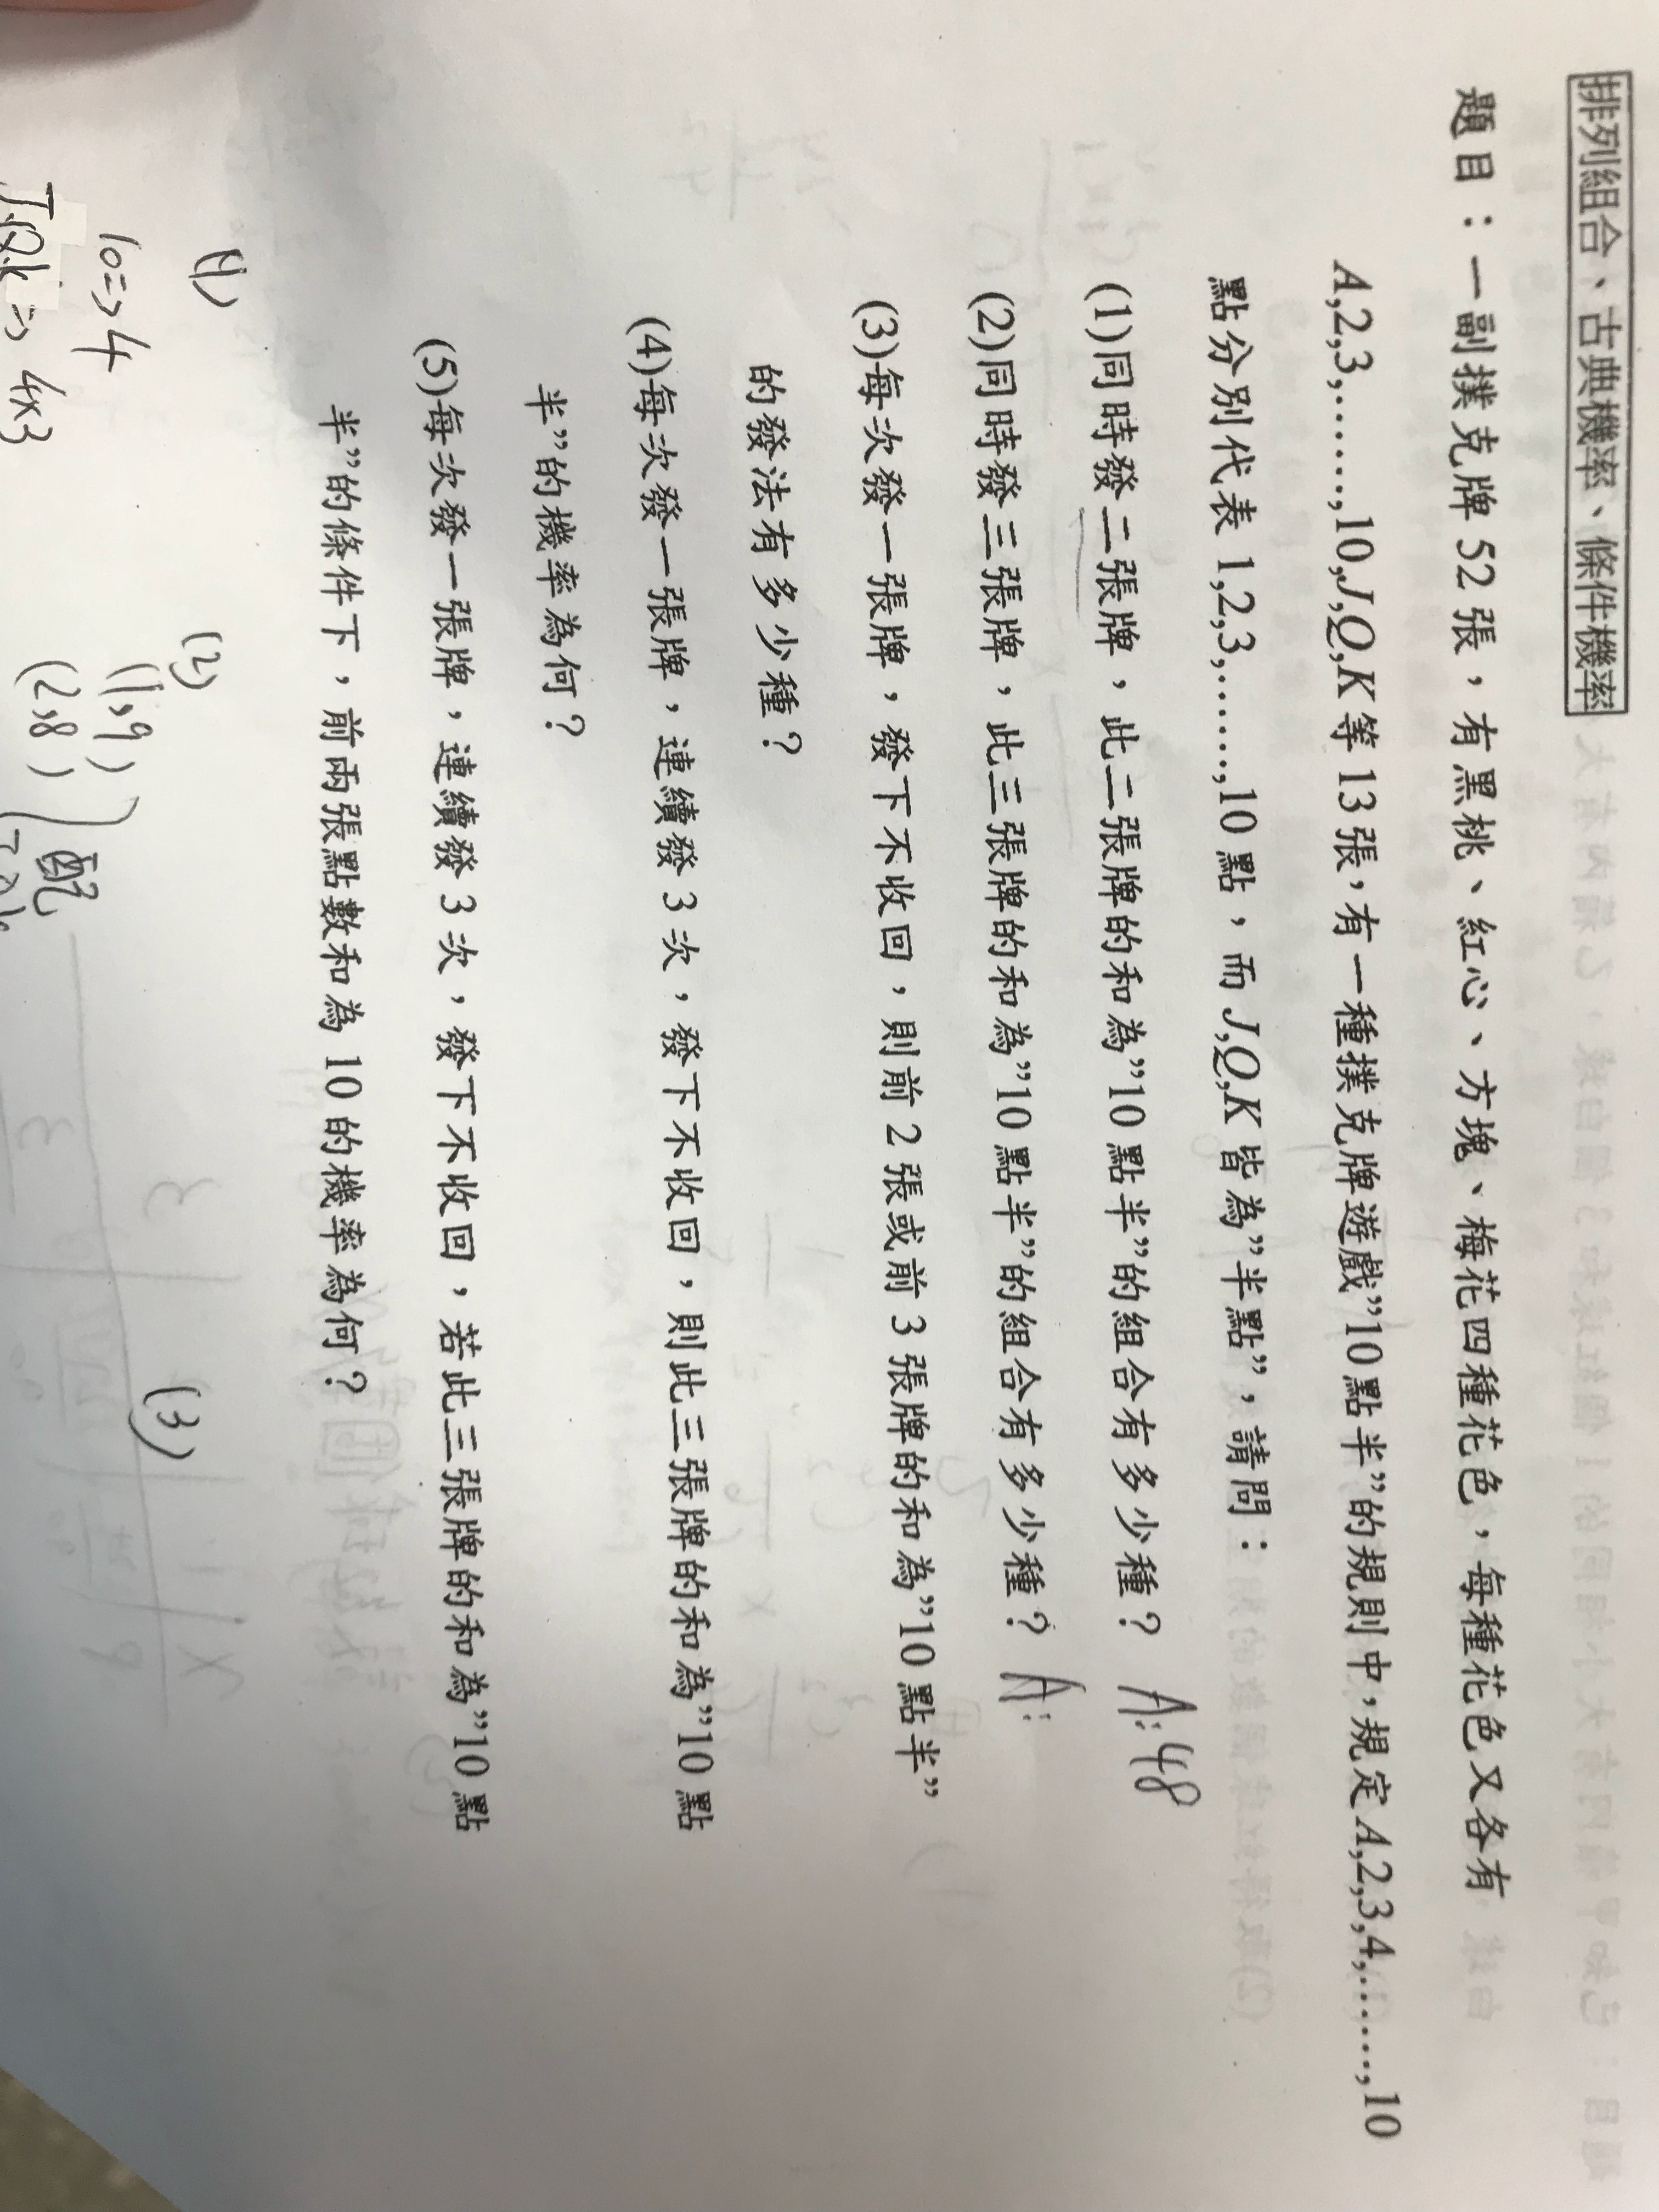 排列組合、古典機率、條件機率
題目：一副撲克牌 52 張，有黑桃、紅心、方塊、梅花四種花色，每種花色又各有
A,2,3,……,10,J,Q,K 等 13 張，有一種撲克牌遊戲”10 點半”的規則中，規定 A,2,3,4,……,10
點分別代表 1,2,3,……,10 點，而 J,Q,K 皆為”半點”，請問：
(1)同時發二張牌，此二張牌的和為”10 點半”的組合有多少種？ A: 48
(2)同時發三張牌，此三張牌的和為”10 點半”的組合有多少種？ A:
(3)每次發一張牌，發下不收回，則前 2 張或前 3 張牌的和為”10 點半”
的發法有多少種？
(4)每次發一張牌，連續發 3 次，發下不收回，則此三張牌的和為”10 點
半”的機率為何？
(5)每次發一張牌，連續發 3 次，發下不收回，若此三張牌的和為”10 點
半”的條件下，前兩張點數和為 10 的機率為何？
(1)
10=>4
J.Q.k => 4x3
(2)
(1,9)
(2,8)
配
(3)